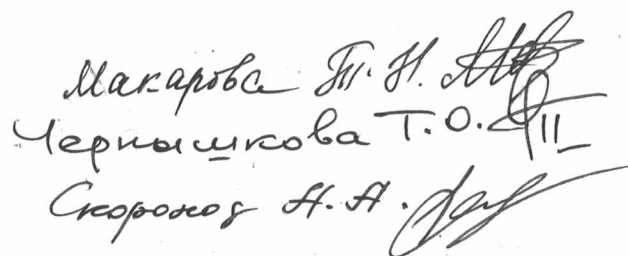 Макарова Т. Н.
Чернышкова Т. О.
Скороход А. А.